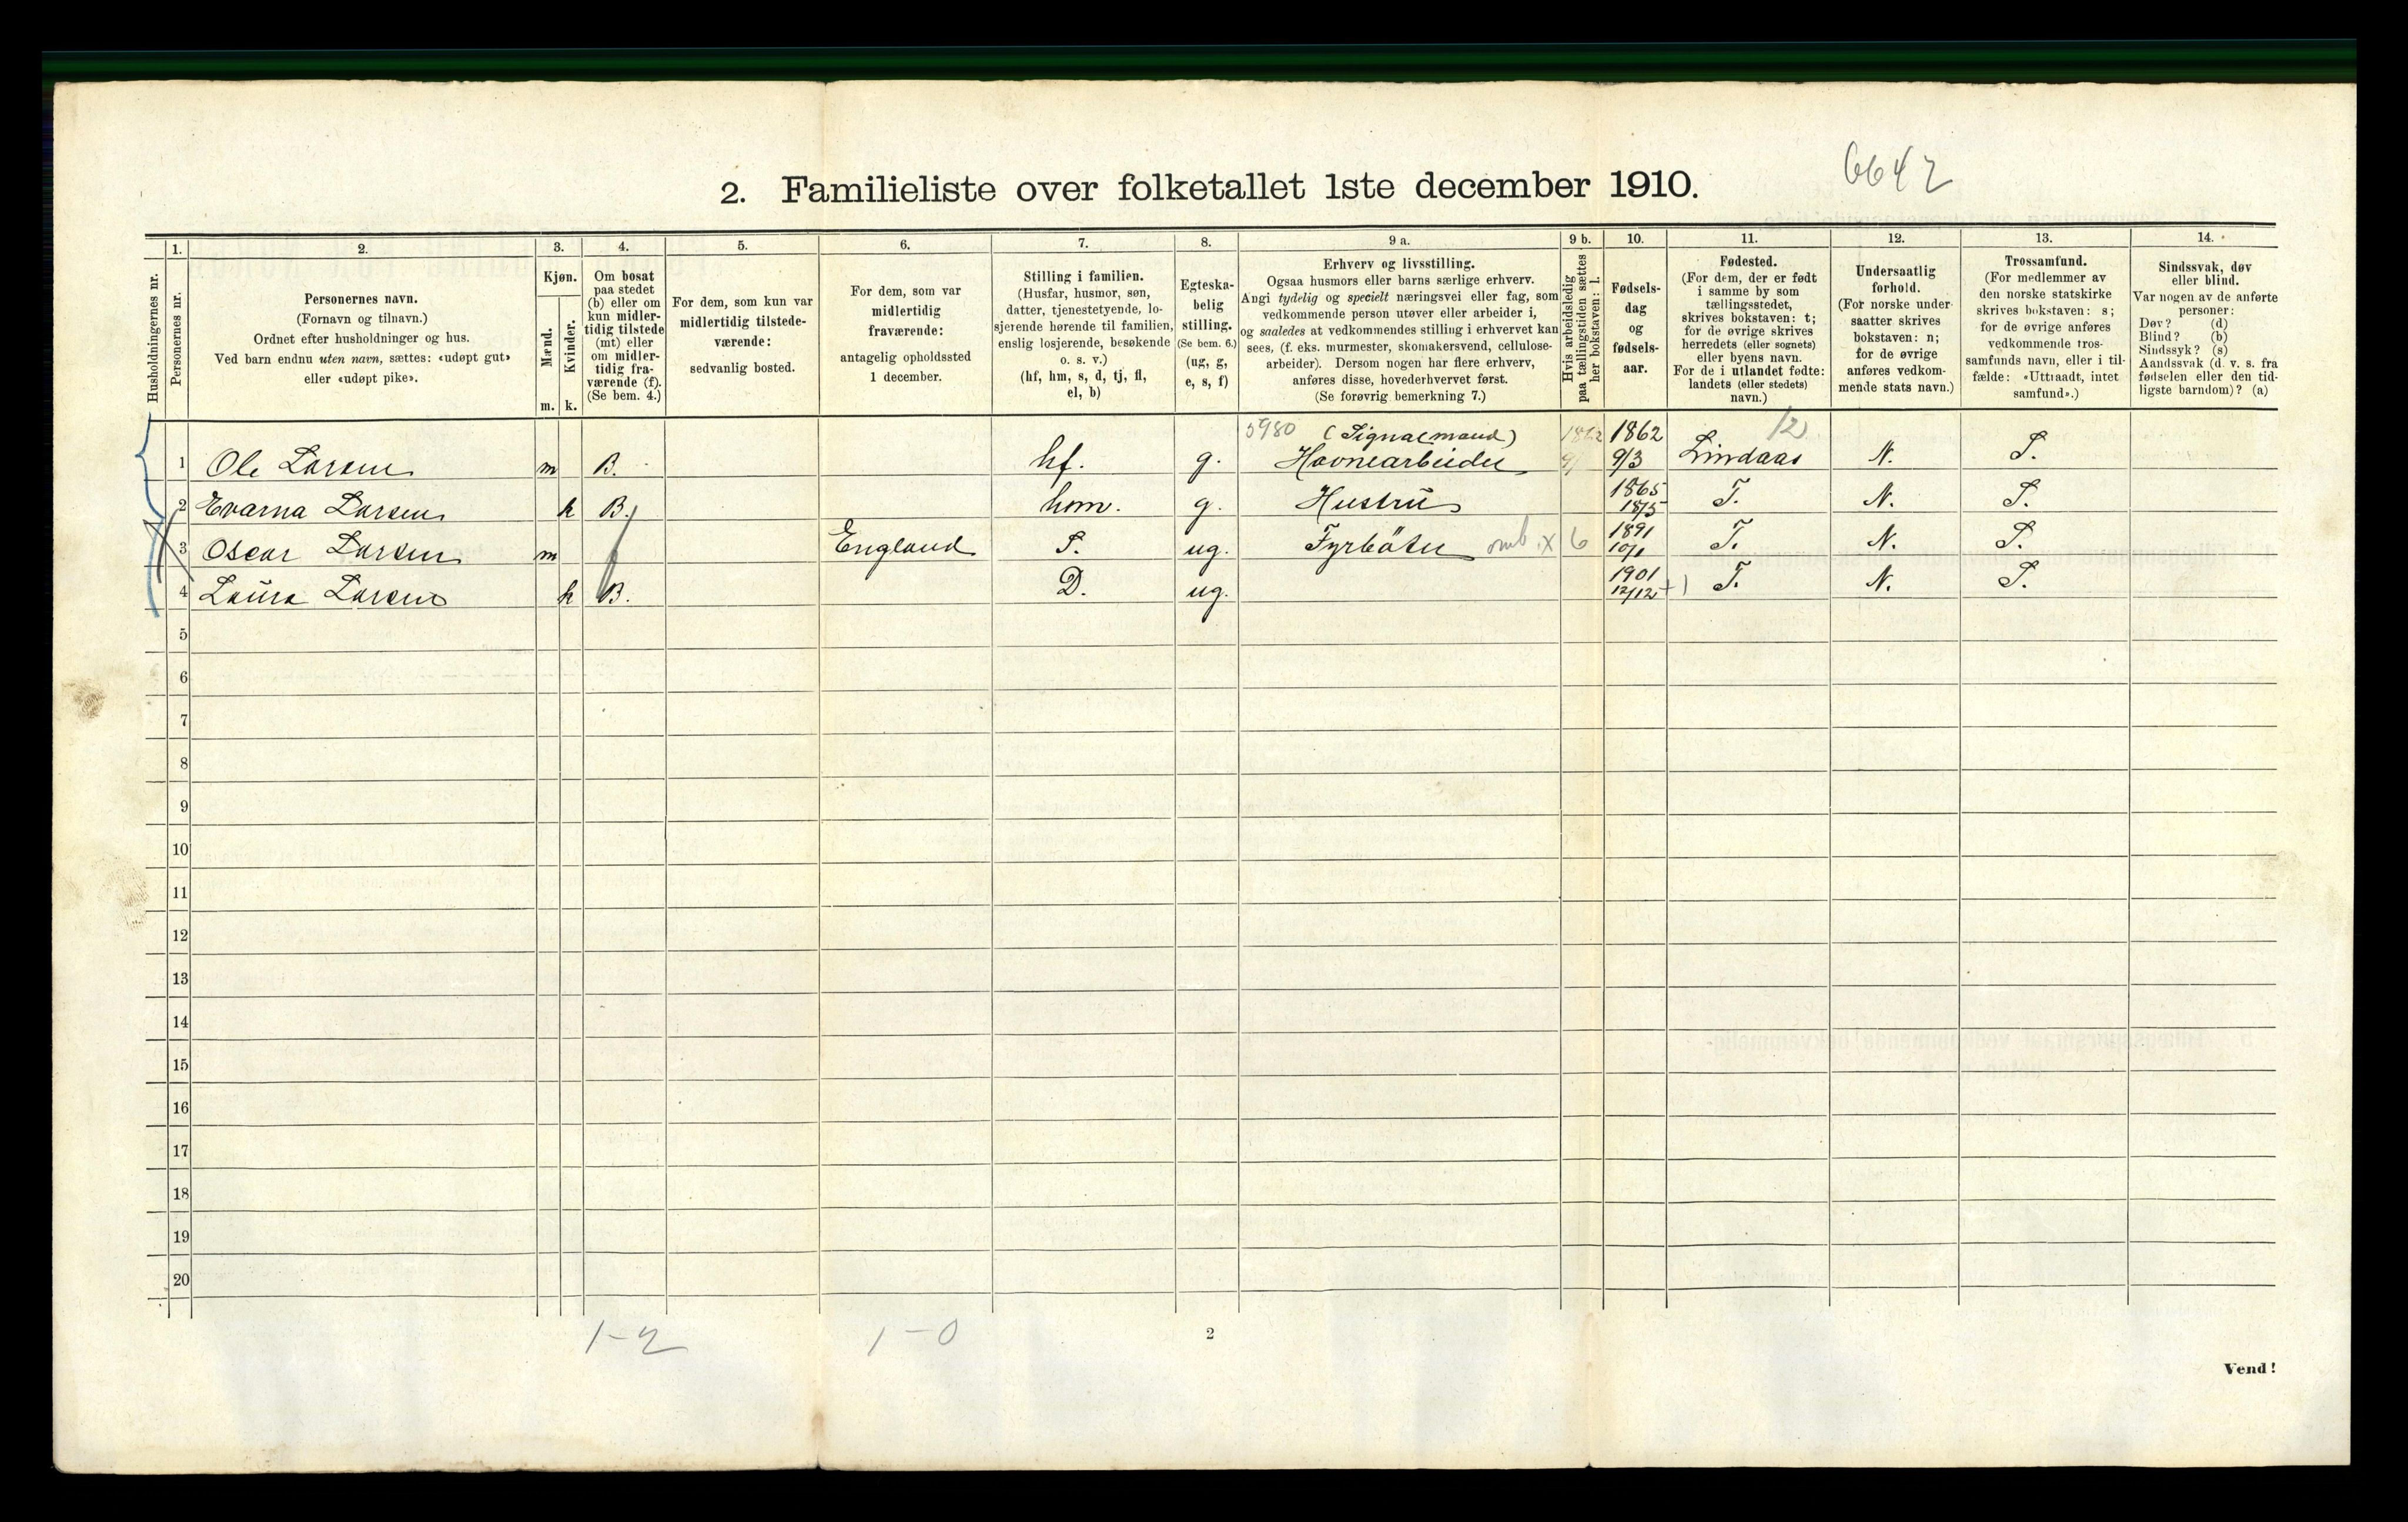 6642
2. Familieliste over folketallet 1ste december 1910.
1. 2. 3. 4. 5. 6. 7. 8. 9 a. 9 b. 10. 11. 12. 13. 14.
Husholdningernes nr.
Personernes nr.
Personernes navn.
(Fornavn og tilnavn.)
Ordnet efter husholdninger og hus.
Ved barn endnu uten navn, sættes: «udøpt gut»
eller «udøpt pike».
Kjøn.
Mænd.
m.
Kvinder.
k.
Om bosat
paa stedet
(b) eller om
kun midler-
tidig tilstede
(mt) eller
om midler-
tidig fra-
værende (f).
(Se bem. 4.)
For dem, som kun var
midlertidig tilstede-
værende:
sedvanlig bosted.
For dem, som var
midlertidig
fraværende:
antagelig opholdssted
1 december.
Stilling i familien.
(Husfar, husmor, søn,
datter, tjenestetyende, lo-
sjerende hørende til familien,
enslig losjerende, besøkende
o. s. v.)
(hf, hm, s, d, tj, fl,
el, b)
Egteska-
belig
stilling.
(Se bem. 6.)
(ug, g,
e, s, f)
Erhverv og livsstilling.
Ogsaa husmors eller barns særlige erhverv.
Angi tydelig og specielt næringsvei eller fag, som
vedkommende person utøver eller arbeider i,
og saaledes at vedkommendes stilling i erhvervet kan
sees, (f. eks. murmester, skomakersvend, cellulose-
arbeider). Dersom nogen har flere erhverv,
anføres disse, hovederhvervet først.
(Se forøvrig bemerkning 7.)
Hvis arbeidsledig
paa tællingstiden sættes
her bokstaven: l.
Fødsels-
dag
og
fødsels-
aar.
Fødested.
(For dem, der er født
i samme by som
tællingsstedet,
skrives bokstaven: t;
for de øvrige skrives
herredets (eller sognets)
eller byens navn.
For de i utlandet fødte:
landets (eller stedets)
navn.)
Undersaatlig
forhold.
(For norske under-
saatter skrives
bokstaven: n;
for de øvrige
anføres vedkom-
mende stats navn.)
Trossamfund.
(For medlemmer av
den norske statskirke
skrives bokstaven: s;
for de øvrige anføres
vedkommende tros-
samfunds navn, eller i til-
fælde: «Uttraadt, intet
samfund».)
Sindssvak, døv
eller blind.
Var nogen av de anførte
personer:
Døv? (d)
Blind? (b)
Sindssyk? (s)
Aandssvak (d. v. s. fra
fødselen eller den tid-
ligste barndom)? (a)
5980 (Signalmand) 1862 1862 12
1 Ole Larsen m B. hf. g. Havnearbeider 9/3 Lindaas N. S.
1865
2 Evarna Larsen k B. hm. g. Hustru 18/5 T. N. S.
1891
3 Oscar Larsen m England S. ug. Fyrböter omb. x 6 10/1 T. N. S.
1901
4 Laura Larsen k B. D. ug. 12/12 T. N. S.
5
6
7
8
9
10
11
12
13
14
15
16
17
18
19
20
1-2 1-0 2
Vend!